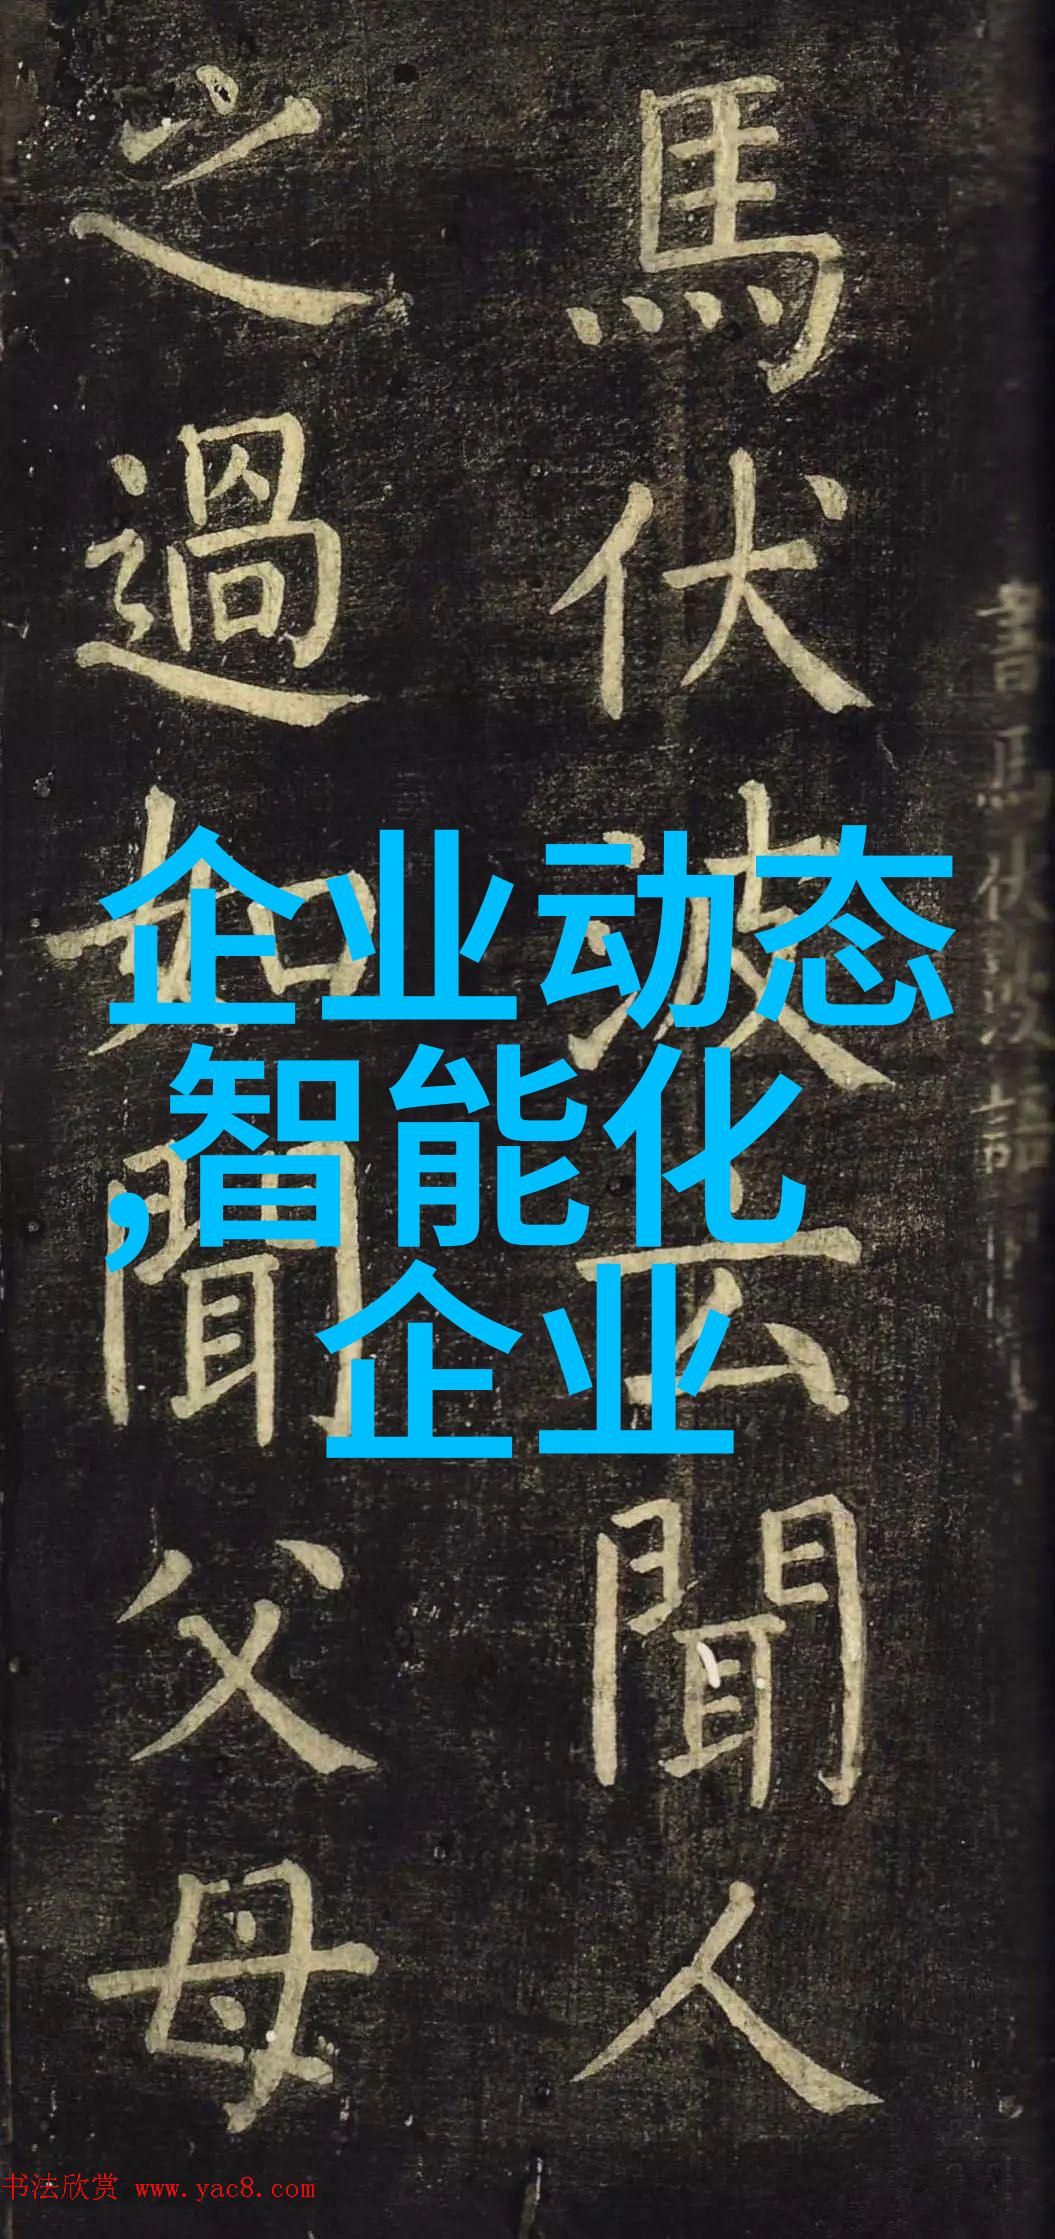 馬伏波云聞人
之過如聞父母
書馬伏波語
企业动态
,智能化
企业
书法欣赏 www.yac8.com